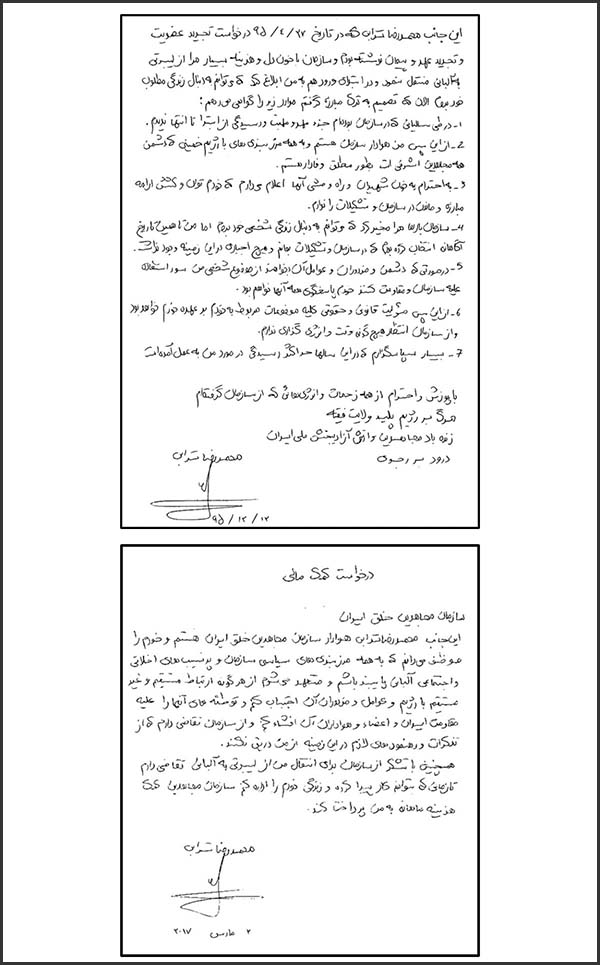 این جانب محمدرضا ترابی که در تاریخ ۹۵/۴/۲۷ درخواست تجدید عضویت
و تجدید عهد و پیمان نوشته بودم و سازمان با خون دل و هزینه بسیار مرا از لیبرتی
به آلبانی منتقل نمود و در ابتدای ورود هم به من ابلاغ کرد که میتوانم به دنبال زندگی مطلوب
خود بروم الان که تصمیم به ترک مبارزه گرفتم موارد زیر را گواهی می دهم:
۱- در طی سالیانی که در سازمان بوده‌ام جز مهر و محبت و رسیدگی از ابتدا تا انتها ندیدم.
۲- از این پس من هوادار سازمان هستم و به همه مرزبندی های با رژیم خمینی که دشمن
همه مجاهدین اشرفی است بطور مطلق وفادار هستم.
۳- به احترام به خون شهیدان و راه و مشی آنها اعلام میدارم که خودم توان و کشش ادامه
مبارزه و ماندن در سازمان و تشکیلات را ندارم.
۴- سازمان بارها مرا مخیر کرد که میتوانم به دنبال زندگی شخصی خود بروم اما من تا همین تاریخ
آگاهانه انتخاب کرده بودم که در سازمان و تشکیلات بمانم و هیچ اجباری در این زمینه وجود نداشت.
۵- در صورتی که دشمن و مزدوران و عوامل آن بخواهند از موضوع شخصی من سوء استفاده
علیه سازمان و مقاومت کنند خودم پاسخگوی همه آنها خواهم بود.
۶- از این پس مسئولیت قانونی و حقوقی کلیه موضوعات مربوط به خودم بر عهده خودم خواهد بود
و از سازمان انتظار هیچ گونه وقت و انرژی گذاری ندارم.
۷- بسیار سپاسگزارم که در این سالها حداکثر رسیدگی در مورد من به عمل آمده است
با پوزش و احترام از همه زحمات و انرژی هائی که از سازمان گرفته‌ام
مرگ بر رژیم پلید ولایت فقیه
زنده باد مجاهدین و ارتش آزادیبخش ملی ایران
درود بر رجوی
محمدرضا ترابی
۹۵/۱۲/۱۲
درخواست کمک مالی
سازمان مجاهدین خلق ایران
این جانب محمدرضا ترابی هوادار سازمان مجاهدین خلق ایران هستم و خودم را
موظف می دانم که به همه مرزبندی های سیاسی سازمان و پرنسیب های اخلاقی
و اجتماعی آلبانی پایبند باشم و متعهد می شوم از هر گونه ارتباط مستقیم و غیر
مستقیم با رژیم و عوامل و مزدوران آن اجتناب کنم و توطئه های آنها را علیه
مقاومت ایران و اعضاء و هواداران آن افشاء کنم و از سازمان تقاضی دارم که از
تذکرات و رهنمودهای لازم در این زمینه از من دریغ نکنند.
همچنین با تشکر از سازمان برای انتقال من از لیبرتی به آلبانی تقاضی دارم
تا زمانی که بتوانم کار پیدا کرده و زندگی خودم را اداره کنم سازمان مجاهدین کمک
هزینه ماهانه به من پرداخت کند.
محمدرضا ترابی
۲ مارس ۲۰۱۷